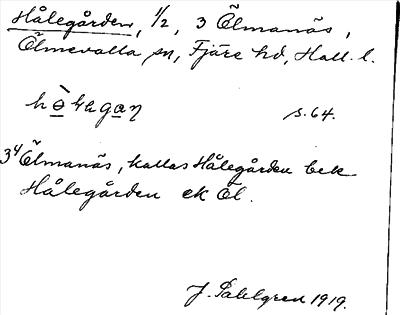 Hålegården, 1/2, 3 Ölmanäs,
Ölmevalla sn, Fjäre hd, Hall. l.
s. 64.
3⁴ Ölmanäs, kallas Hålegården bek
Hålegården ek Öl.
J. Sahlgren 1919.